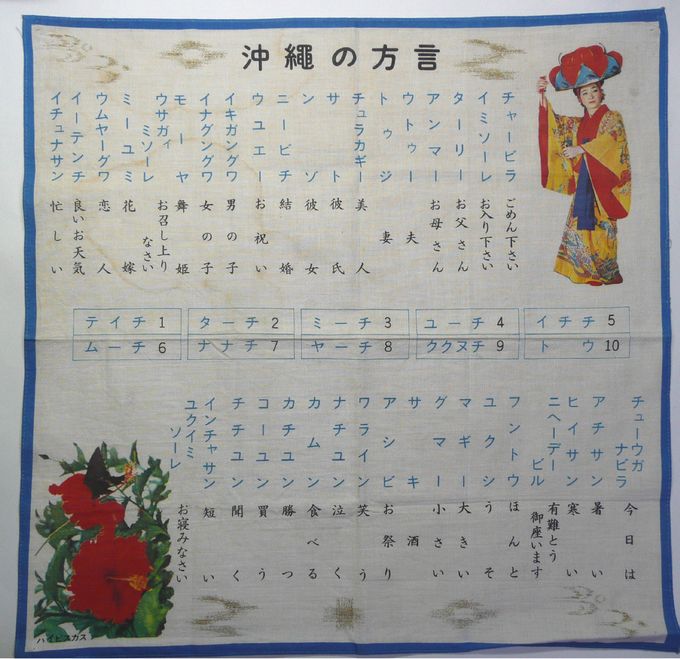 沖縄の方言
チャービラ ごめん下さい
イミソーレ お入り下さい
ターリー お父さん
アンマー お母さん
ウトゥー 夫
トゥジ 妻
チュラカギー 美人
サト 彼氏
ンゾ 彼女
ニービチ 結婚
ウユエー お祝い
イキガングワ 男の子
イナグングワ 女の子
モーヤ 舞姫
ウサガィミソーレ お召し上りなさい
ミーユミ 花嫁
ウムヤーグワ 恋人
イーテンチ 良いお天気
イチュナサン 忙しい
テイチ 1 ターチ 2 ミーチ 3 ユーチ 4 イチチ 5
ムーチ 6 ナナチ 7 ヤーチ 8 ククヌチ 9 トウ 10
チューウガナビラ 今日は
アチサン 暑い
ヒイサン 寒い
ニヘーデービル 有難とう御座います
フントウ ほんと
ユクシ うそ
マギー 大きい
グマー 小さい
サキ 酒
アシビ お祭り
ワライン 笑う
ナチユン 泣く
カムン 食べる
カチユン 勝つ
コーユン 買う
チチユン 聞く
インチャサン 短い
ユクイミソーレ お寝みなさい
ハイビスカス